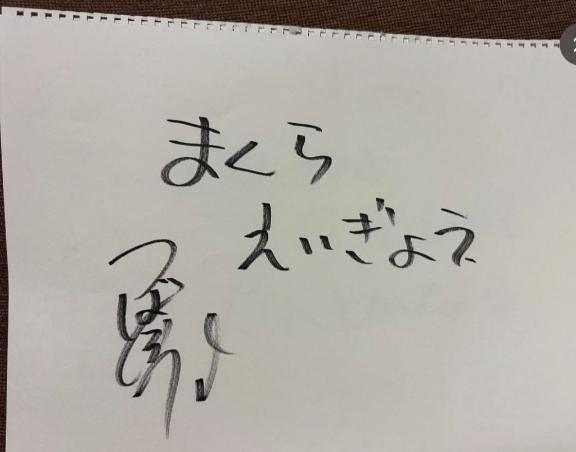 まくら
えいぎょう
つば